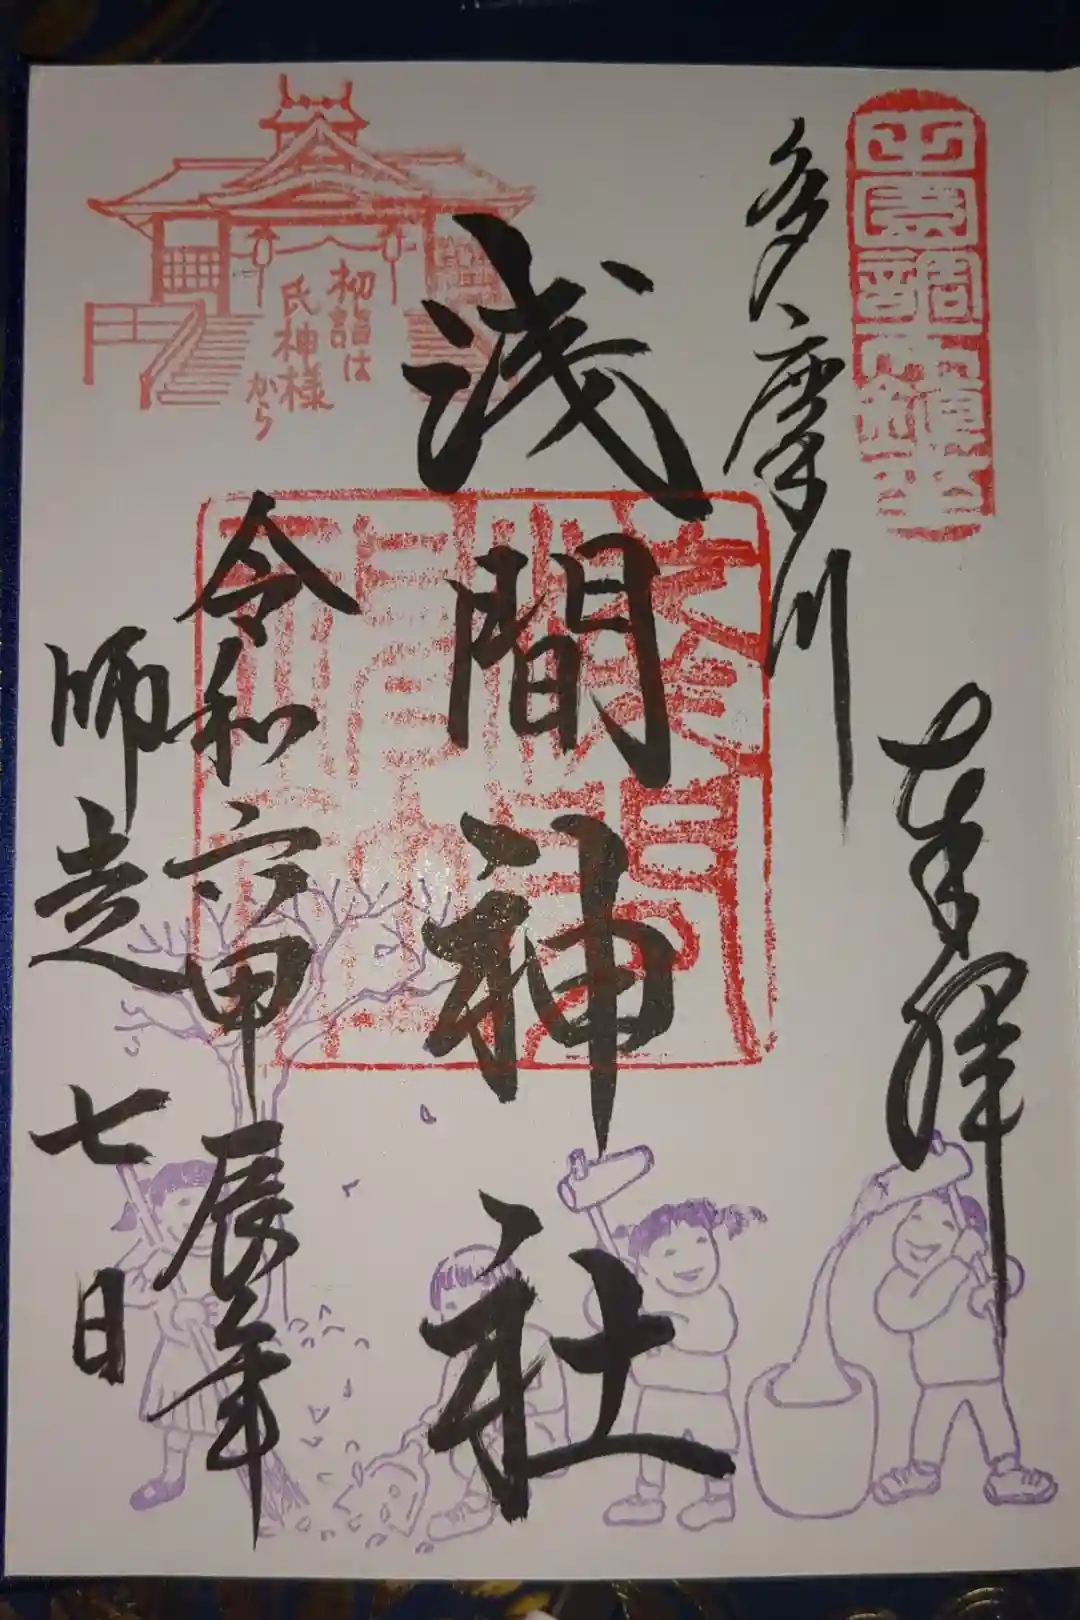 田園調布鎮座
奉拝
多摩川
浅間神社
初詣は
氏神様
から
令和六甲辰年
師走七日